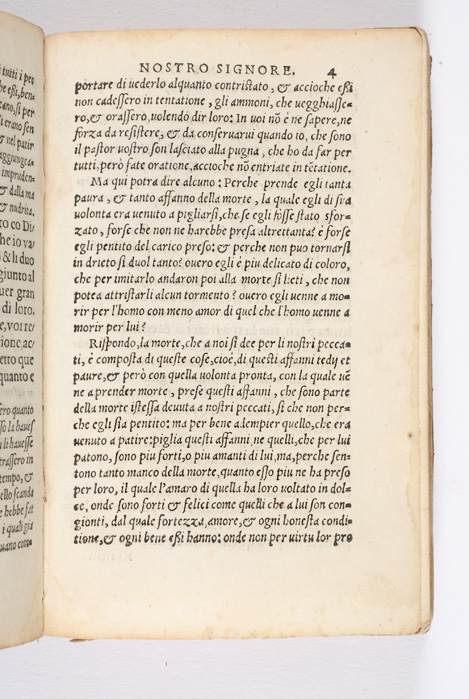 tutti i pe
NOSTRO SIGNORE. 4
portare di uederlo alquanto contristato, & accioche eßi
non cadessero in tentatione, gli ammoni, che uegghiasse-
ro, & orassero, uolendo dir loro: In uoi nõ è ne sapere, ne
forza da resistere, & da conseruarui quando io, che sono
il pastor uostro, son lasciato alla pugna, che ho da far per
tutti, però fate oratione, accioche nõ entriate in tẽtatione.
Ma qui potra dire alcuno: Perche prende egli tanta
paura, & tanto affanno della morte, la quale egli di sua
uolonta era uenuto a pigliarsi, che se egli fosse stato sfor-
zato, forse che non ne harebbe presa altrettanta? è forse
egli pentito del carico preso: & perche non puo tornarsi
in drieto si duol tanto? ouero egli è piu delicato di coloro,
che per imitarlo andaron poi alla morte si lieti, che non
potea attristarli alcun tormento? ouero egli uenne a mo-
rir per l'homo con meno amor di quel che l'homo uenne a
morir per lui?
Rispondo, la morte, che a noi si dee per li nostri pecca-
ti, è composta di queste cose, cioè, di questi affanni tedij et
paure, & però con quella uolonta pronta, con la quale uẽ
ne a prender morte, prese questi affanni, che sono parte
della morte istessa deuuta a nostri peccati, si che non per-
che egli sia pentito: ma per bene adempier quello, che era
uenuto a patire: piglia questi affanni, ne quelli, che per lui
patono, sono piu forti, o piu amanti di lui, ma, perche sen-
tono tanto manco della morte, quanto esso piu ne ha preso
per loro, il quale l'amaro di quella ha loro uoltato in dol-
ce, onde sono forti & felici come quelli che a lui son con-
gionti, dal quale fortezza, amore, & ogni honesta condi-
tione, & ogni bene eßi hanno: onde non per uirtu lor pro